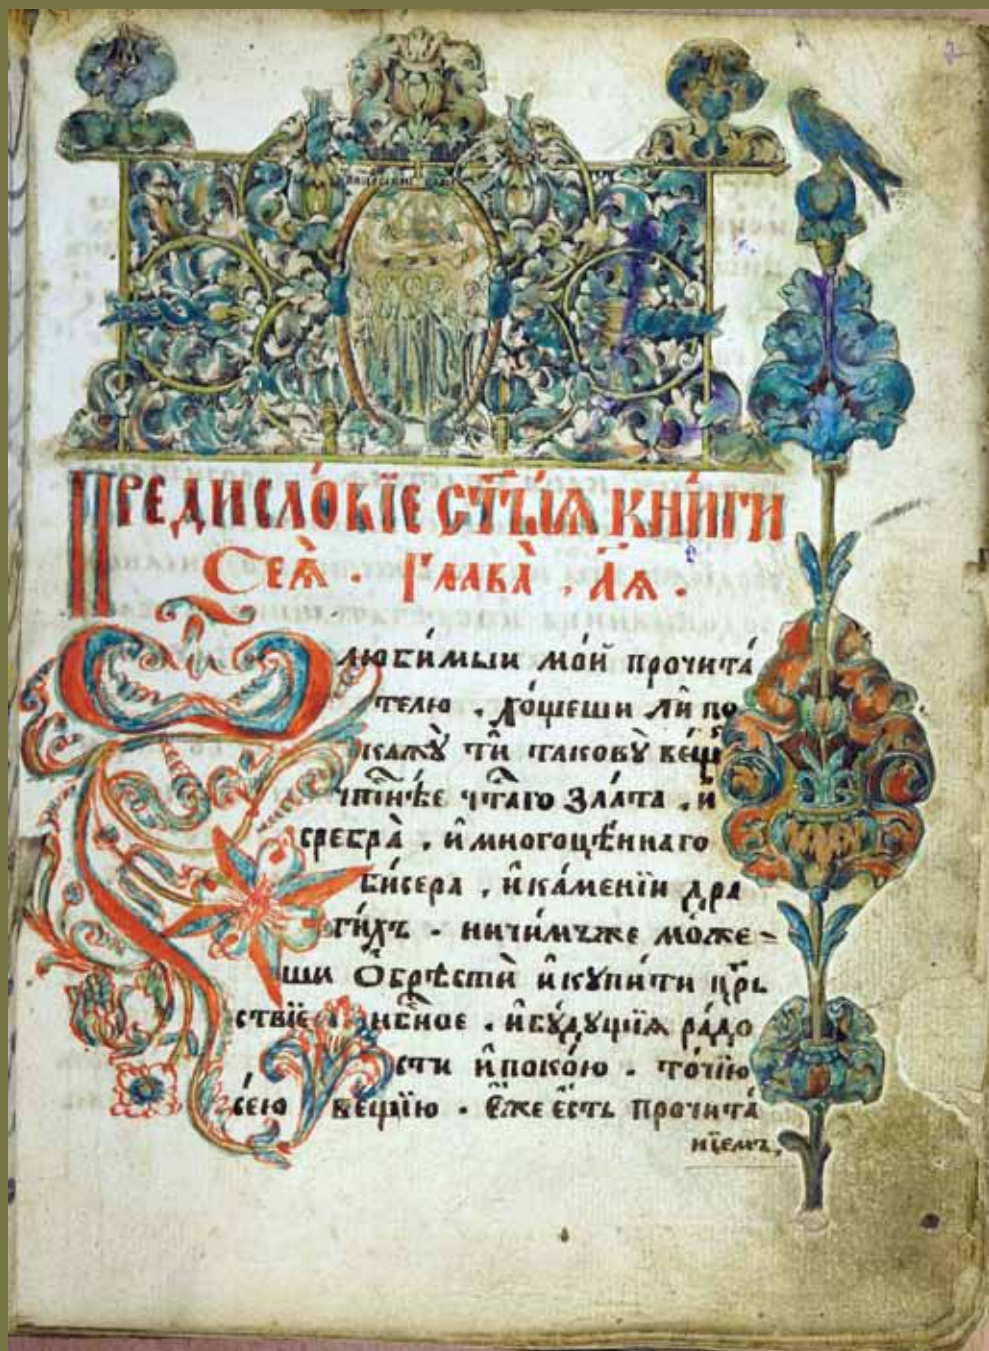 Предисло́вїе ст҃ы́ѧ кни́ги
Сеѧ̀ . Глава̀ . а҃ѧ .
Ѽ
любимыи мо́й прочита́
телю . хо́щеши ли̂ по
кажу̀ ти̂ такову̀ ве́щ
чт҇нѣе чт҇аго зла́та . и҆
сребра̀ . и҆ многоцѣ́ннаго
би́сера , и҆ ка́менїи дра
ги́хъ . ничи́мъже мо́же-
ши Ѻбрѣсти̂ и҆ купи́ти цр҇ь
ствїе нб҇ное . и҆ бу́дущїѧ ра́до
сти и҆ поко́ю . то́чїю
се́ю ве́щїю . є҆́же є҆́сть прочита́
нїемъ,